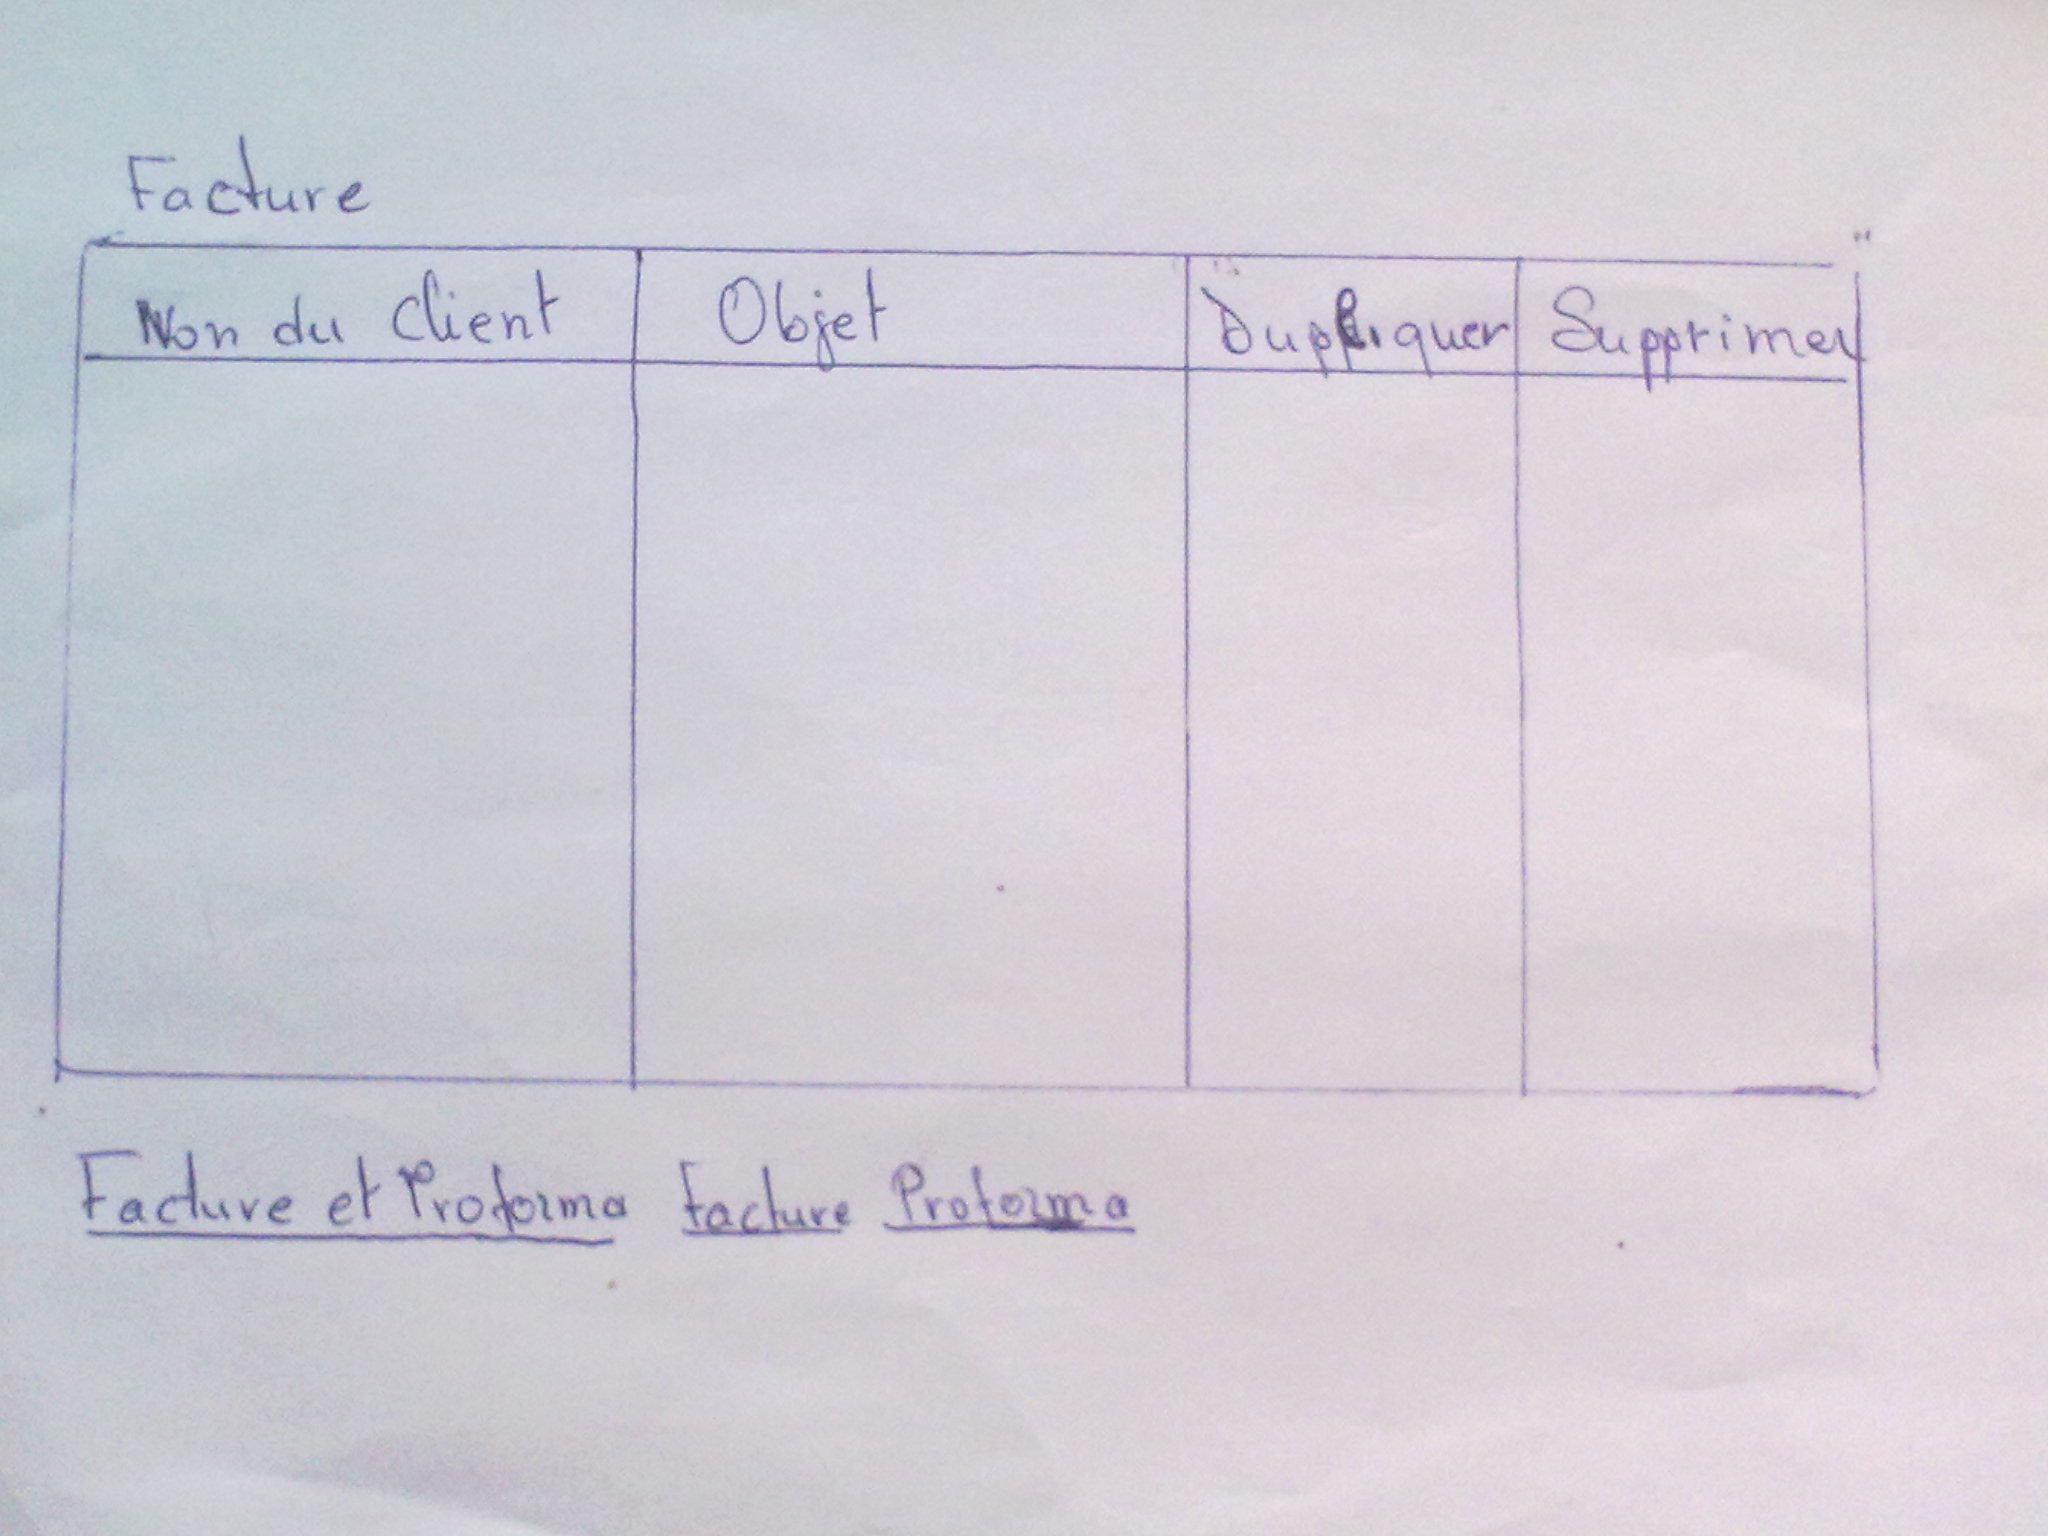 Facture
Non du Client Objet Dupliquer Supprimer
Facture et Proforma Facture Proforma